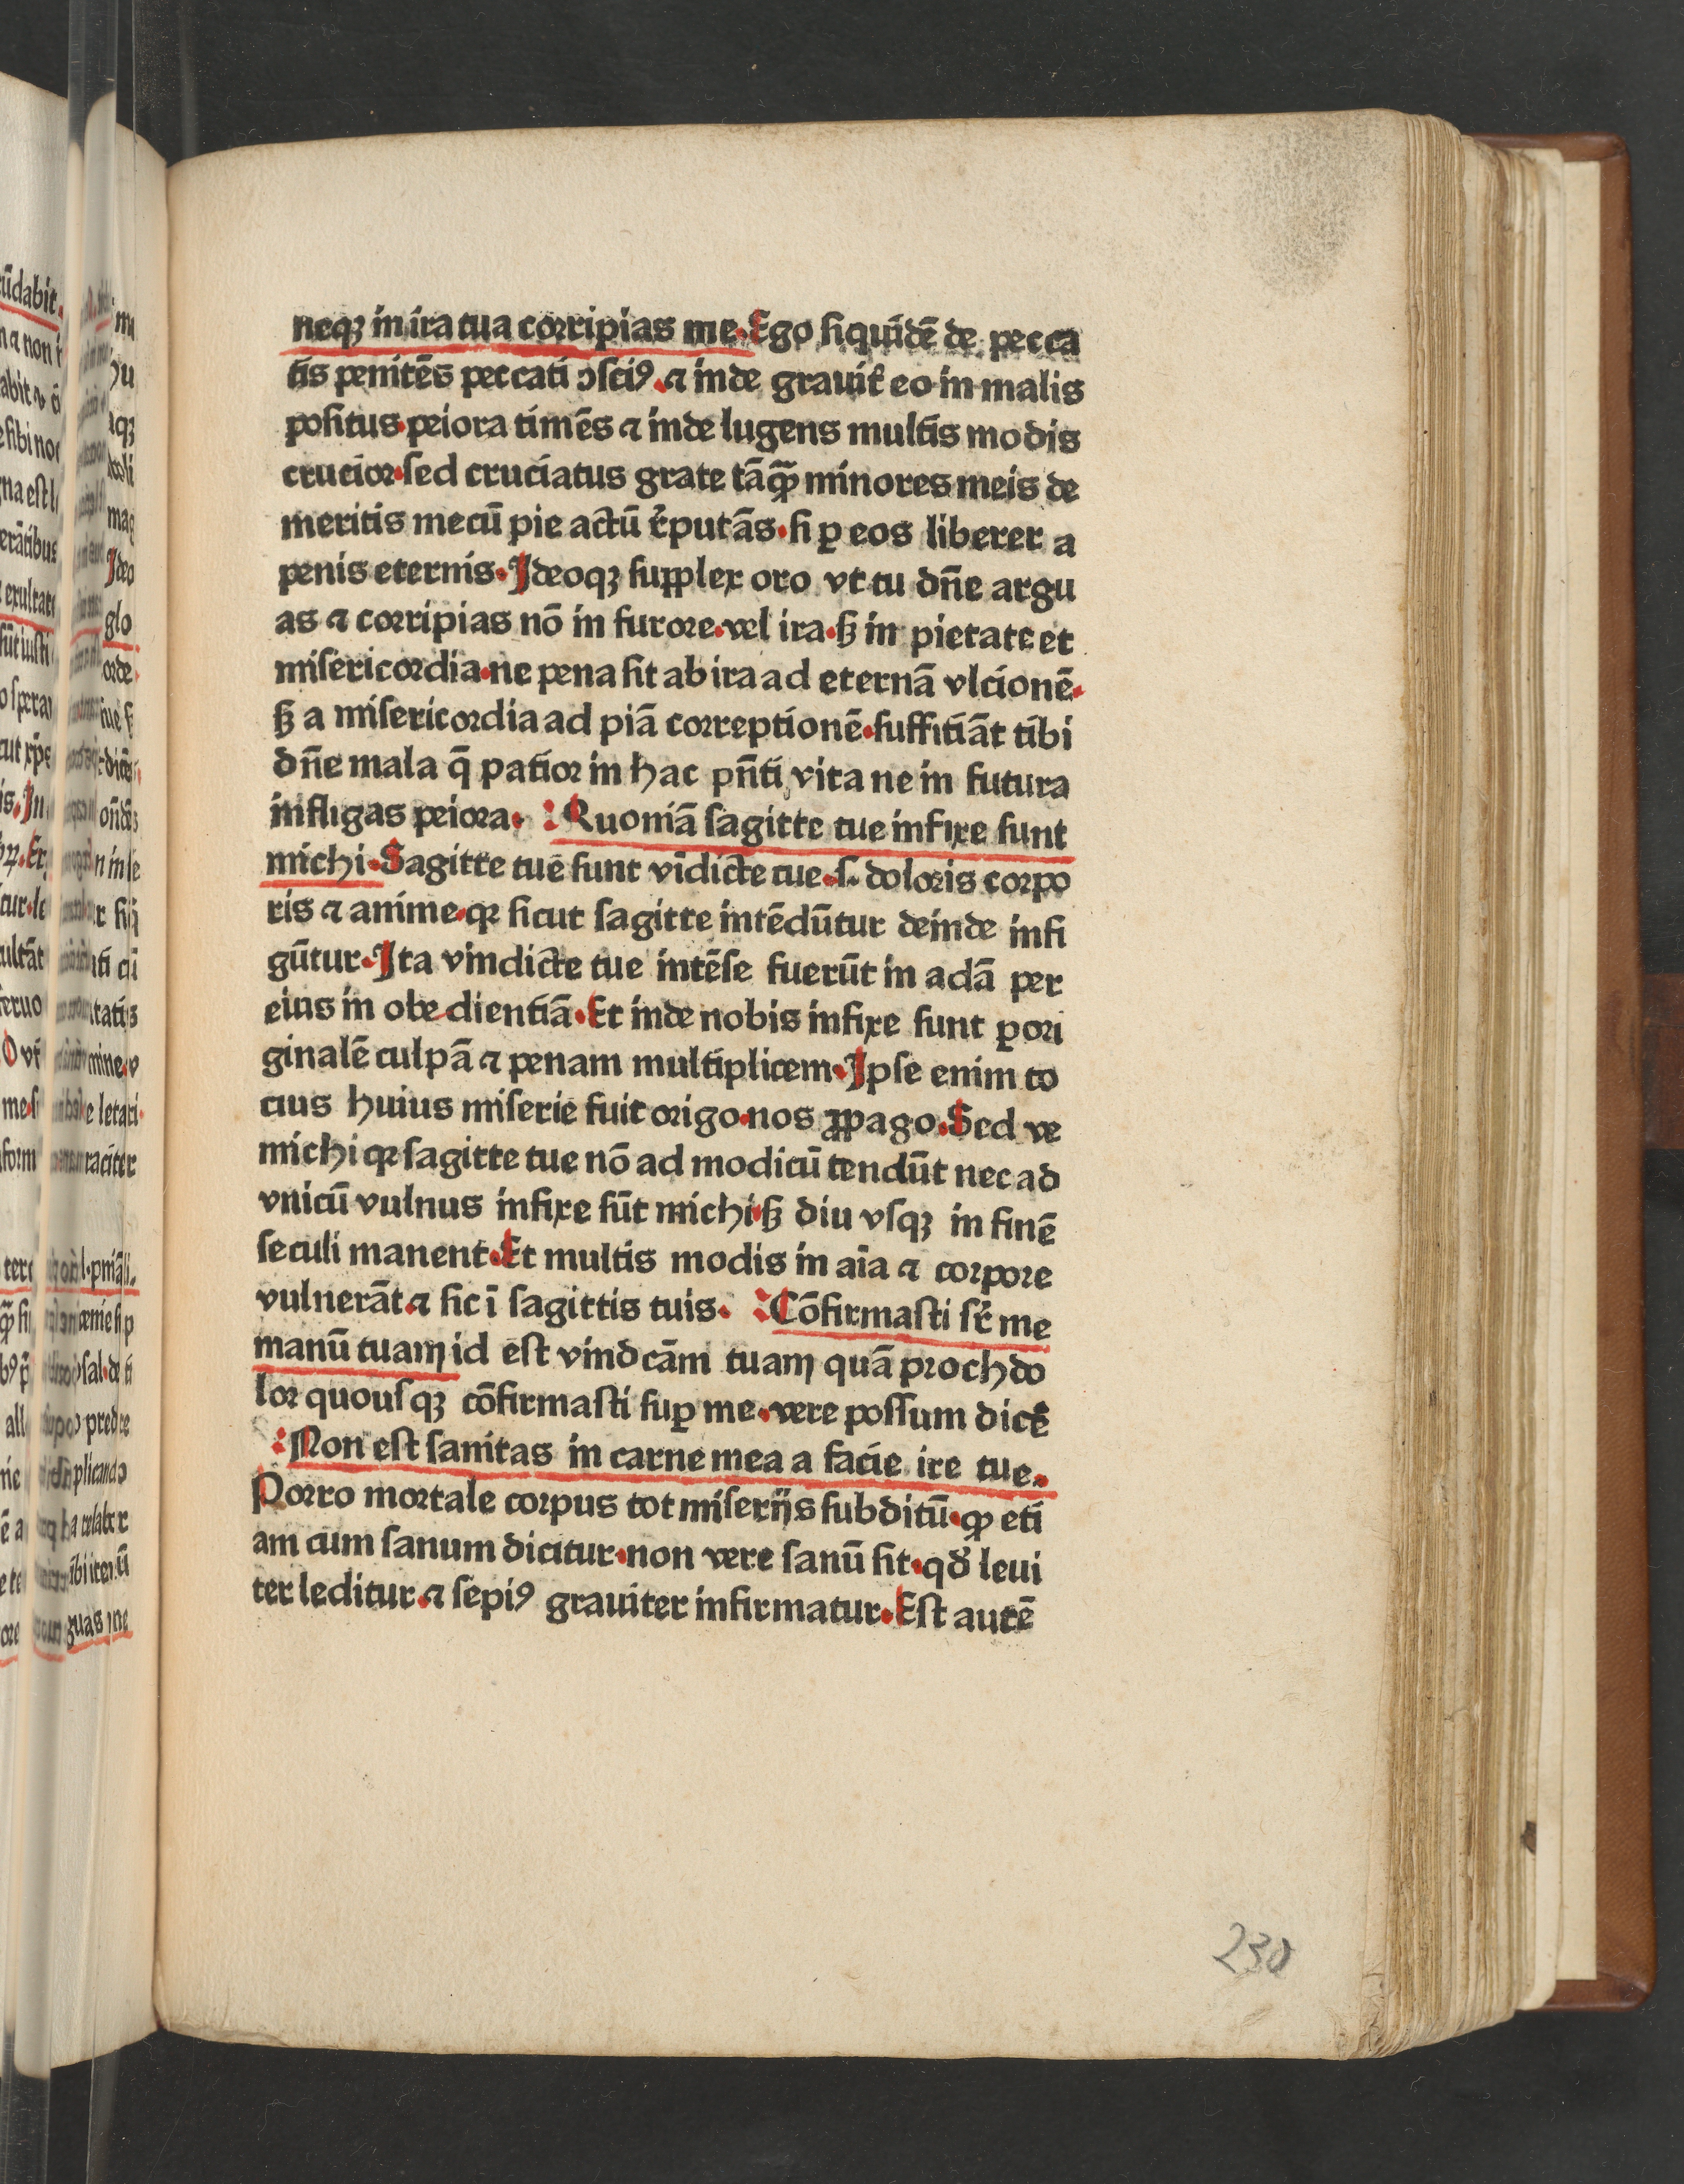 neqꝫ in ira tua corripias me. Ego siquidē de pecca
tis penitēs peccati ↄsciꝰ. ⁊ inde grauiꝰ eo in malis
positus. peiora timēs ⁊ inde lugens multis modis
crucior. sed cruciatus grate tāꝙ̄ minores meis de
meritis mecū pie actū r̓putās. si ꝑ eos liberer a
penis eternis. Ideoqꝫ supplex oro vt tu dn̄e argu
as ⁊ corripias nō in furore. vel ira. sꝫ in pietate et
misericordia. ne pena sit ab ira ad eternā vlcionē.
sꝫ a misericordia ad piā correptionē. suffitiāt tibi
dn̄e mala q̄ patior in hac pn̄ti vita ne in futura
infligas peiora. Quoniā sagitte tue infixe sunt
michi. Sagitte tue sunt vīdicte tue. s. doloris corpo
ris ⁊ anime. qꝛ sicut sagitte intēdūtur deinde infi
gūtur. Ita vindicte tue intēse fuerūt in adā per
eius in obedientiā. Et inde nobis infixe sunt ꝑ ori
ginalē culpā ⁊ penam multiplicem. Ipse enim to
cius huius miserie fuit origo. nos ꝓpago. Sed ve
michi qꝛ sagitte tue nō ad modicū tendūt nec ad
vnicū vulnus infixe sūt michi. sꝫ diu vsqꝫ in finē
seculi manent. Et multis modis in aīa ⁊ corpore
vulnerāt. ⁊ sic ī sagittis tuis. Cōfirmasti sr̓ me
manū tuam id est vindcām tuam quā proch do
lor quousqꝫ cōfirmasti suꝑ me. vere possum dicē
Non est sanitas in carne mea a facie ire tue.
Porro mortale corpus tot miserijs subditū. ꝙ eti
am cum sanum dicitur. non vere sanū sit. qd̓ leui
ter leditur. ⁊ sepiꝰ grauiter infirmatur. Est autē
230